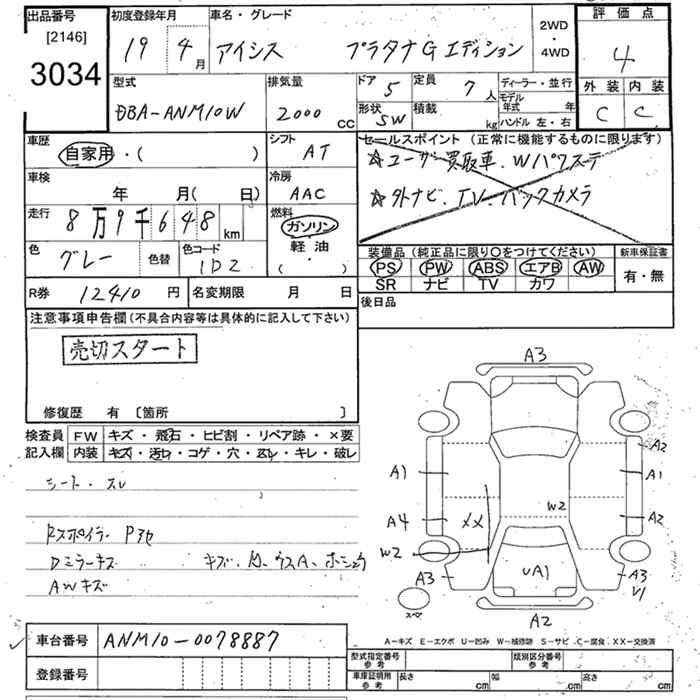 出品番号 初度登録年月 車名・グレード 2WD・4WD 評価点
[2146] 3034 19 4月 アイシス プラタナGエディション 4
型式 排気量 ドア 5 定員 7人 ディーラー・並行 外装 内装
DBA-ANM10W 2000cc 形状 SW 積載 kg モデル年式 年 ハンドル 左・右 C C
車歴 自家用・( ) シフト AT セールスポイント (正常に機能するものに限ります)
☆ユーザー買取車.Wパワステ
車検 年 月( 日) 冷房 AAC ☆外ナビ.TV.バックカメラ
走行 8万9千648km 燃料 ガソリン・軽油・( )
色 グレー 色替 色コード 1D2 装備品 (純正品に限り○をつけてください) 新車保証書
PS PW ABS エアB AW 有・無
SR ナビ TV カワ
R券 12410円 名変期限 月 日 後日品
注意事項申告欄 (不具合内容等は具体的に記入して下さい)
売切スタート
修復歴 有 [箇所 ]
検査員 FW キズ・飛石・ヒビ割・リペア跡・×要
記入欄 内装 キズ・汚レ・コゲ・穴・スレ・キレ・破レ
シート.スレ
Rスポイラー
Dミラーキズ
AWキズ
A3
A2
A1 A1
A4 XX W2 A2
W2
A3 UA1 A3
U1
スペ
A2
A-キズ E-エクボ U-凹み W-補修跡 S-サビ C-腐食 XX-交換済
車台番号 ANM10-0078887
登録番号
型式指定番号 参考 類別区分番号 参考
車庫証明用 参考 長さ cm 幅 cm 高さ cm